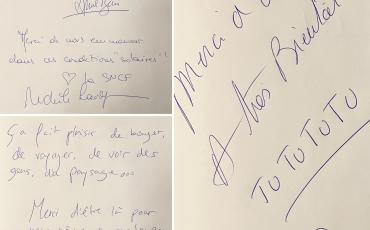 Merci de nous emmener
dans ces conditions "solaires"!
♡ la SNCF
Ça fait plaisir de bouger,
de voyager, de voir des
gens, du paysage...
Merci d'être là pour
Merci à
A très Bientôt
TU TU TU TU